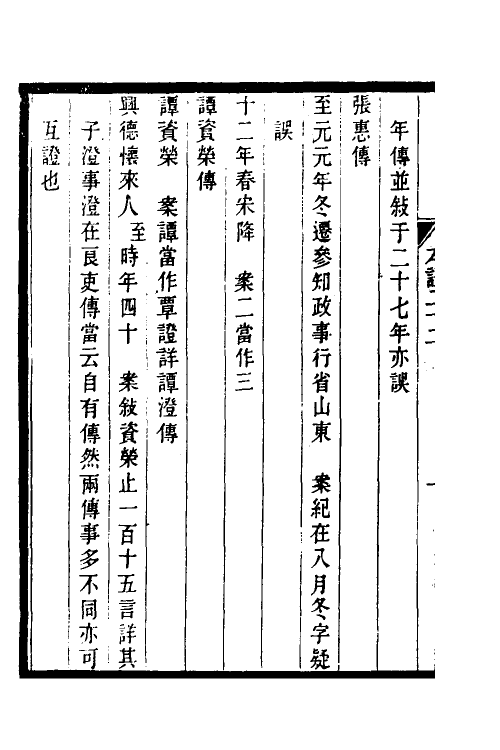 年傳並敍于二十七年亦誤
張惠傳
至元元年冬遷參知政事行省山東　案紀在八月冬字疑
誤
十二年春宋降　案二當作三
譚資榮傳
譚資榮　案譚當作覃證詳譚澄傳
興德懷來人至時年四十　案敍資榮止一百十五言詳其
子澄事澄在良吏傳當云自有傳然兩傳事多不同亦可
互證也